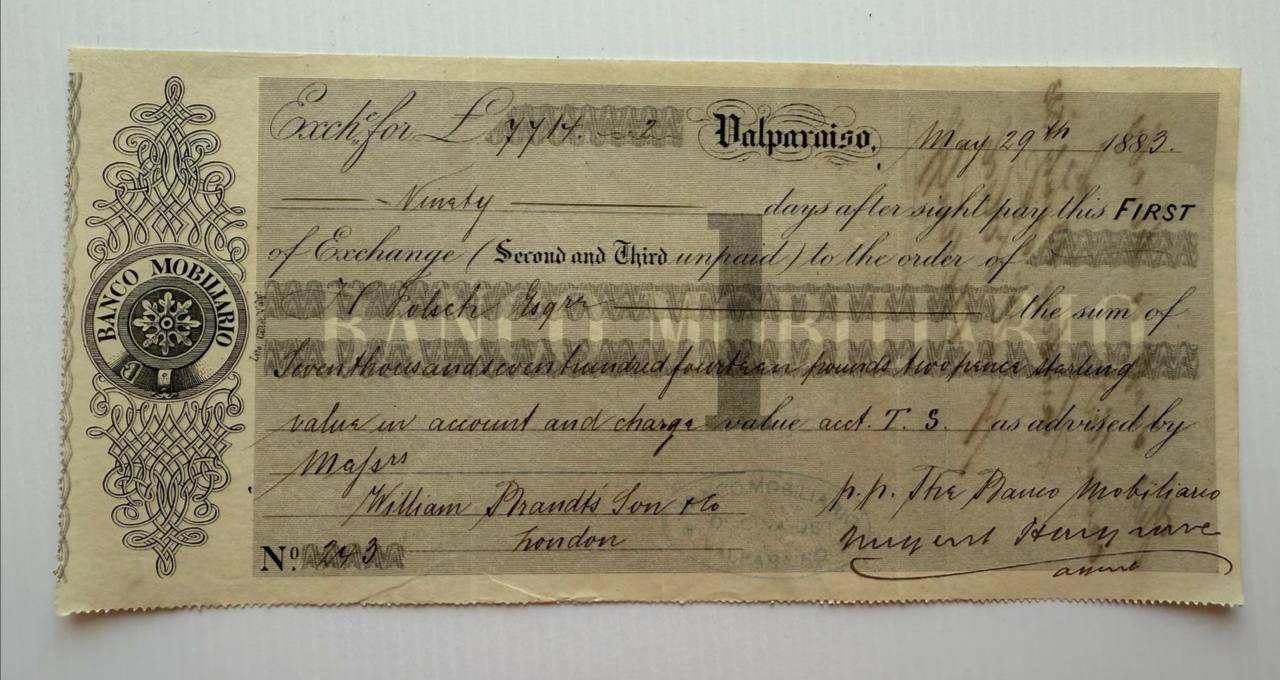 BANCO MOBILIARIO
Exch.e for £ 7714. – – 2 Valparaiso, May 29th 1883.
Ninety days after sight pay this FIRST
of Exchange (Second and Third unpaid) to the order of
H Esqre the sum of
Seven thousand seven hundred fourteen pounds two pence sterling
value in account and charge value acct. T. S. as advised by
Messrs
William Brandt's Son & Co
London
No. 243
p.p. The Banco Mobiliario
Nugent
agent
BANCO MOBILIARIO
1
BANCO MOBILIARIO
VALPARAISO